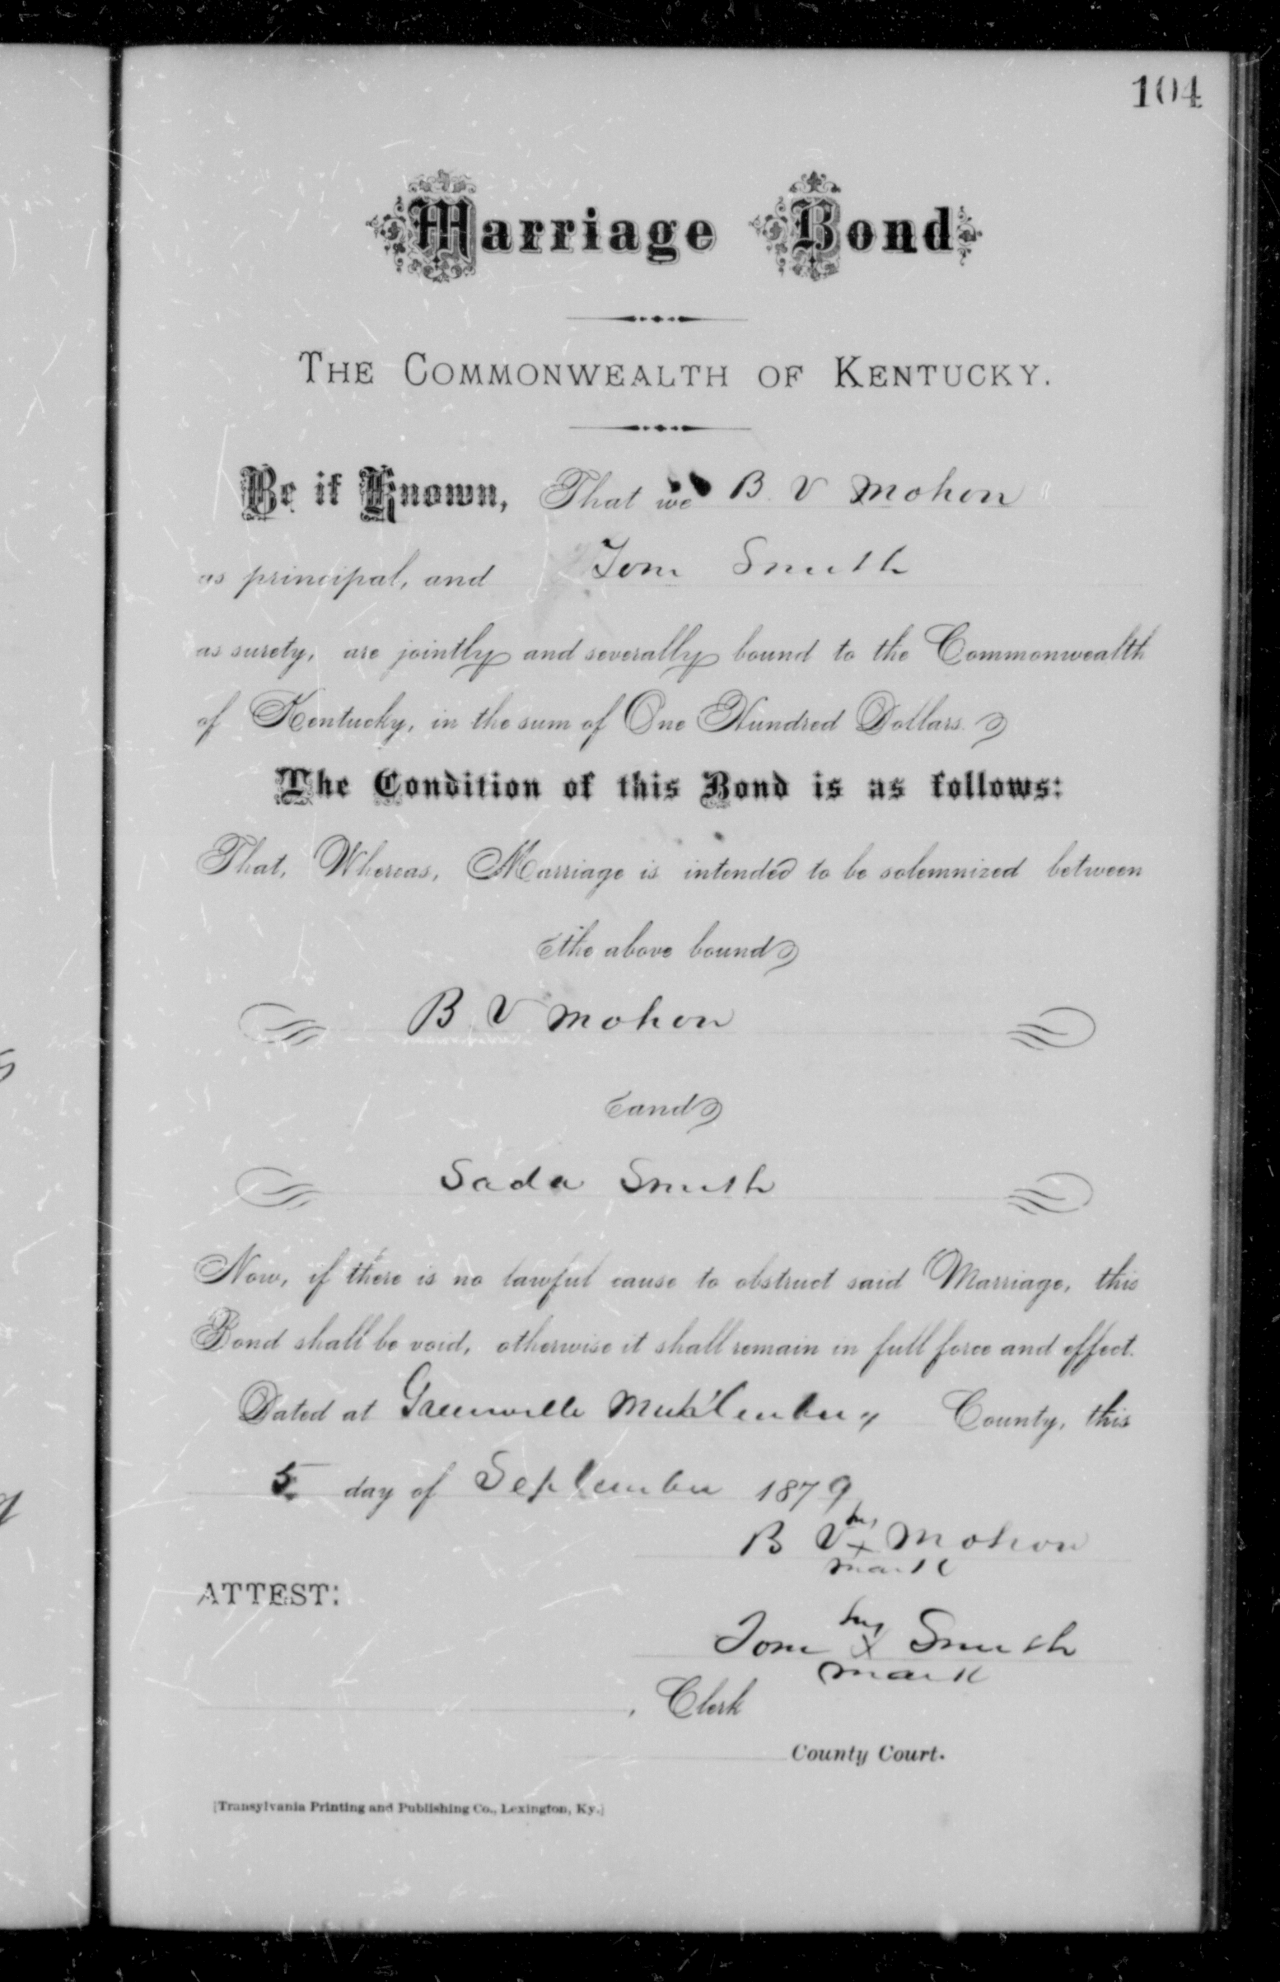 104
Marriage Bond
THE COMMONWEALTH OF KENTUCKY.
Be it Known, That we B V Mohon
as principal, and Tom Smith
as surety, are jointly and severally bound to the Commonwealth
of Kentucky, in the sum of One Hundred Dollars.
The Condition of this Bond is as follows:
That, Whereas, Marriage is intended to be solemnized between
the above bound
B V Mohon
and
Sada Smith
Now, if there is no lawful cause to obstruct said Marriage, this
Bond shall be void, otherwise it shall remain in full force and effect.
Dated at Greenville Muhlenberg County, this
5 day of September 1879
his
B V x Mohon
mark
ATTEST:
his
Tom x Smith
mark
, Clerk
County Court.
[Transylvania Printing and Publishing Co., Lexington, Ky.]